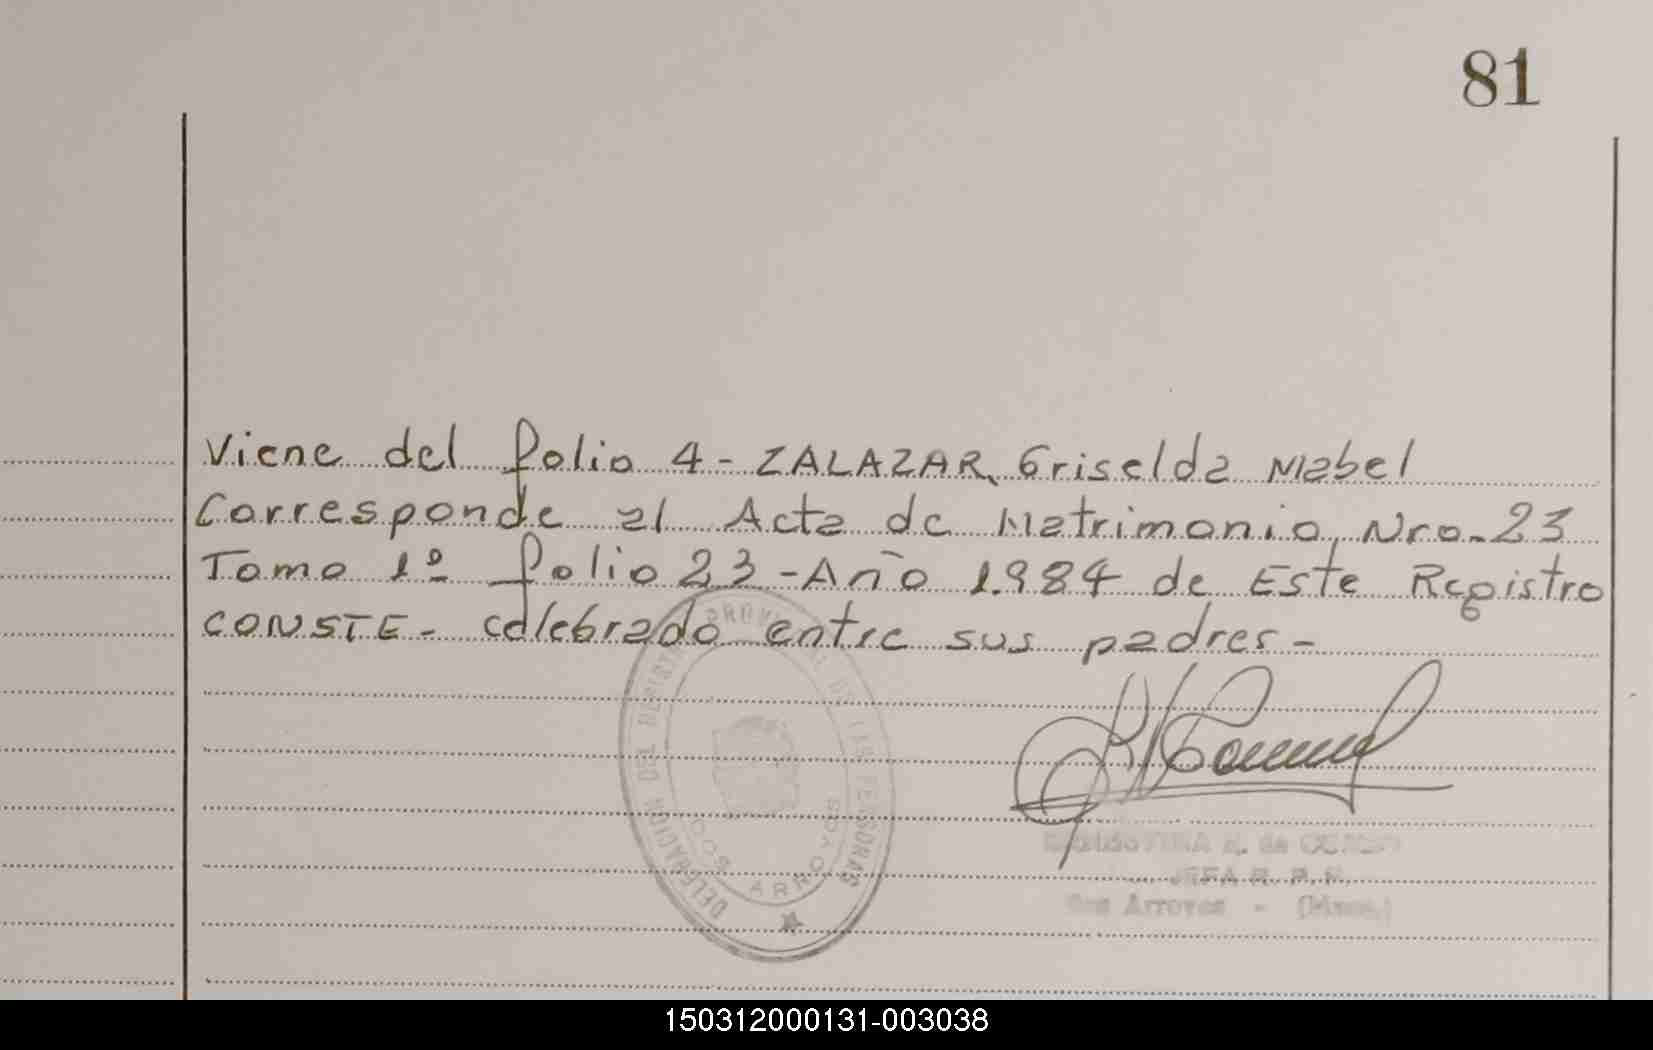 81
Viene del folio 4 - ZALAZAR, Griselda Mabel
Corresponde al Acta de Matrimonio, Nro. 23
Tomo 1º folio 23 - Año 1.984 de Este Registro
CONSTE - celebrado entre sus padres -
DELEGACION DEL REGISTRO PROVINCIAL DE LAS PERSONAS
DOS ARROYOS
JEFA R. P. P.
Dos Arroyos - (Mnes.)
150312000131-003038